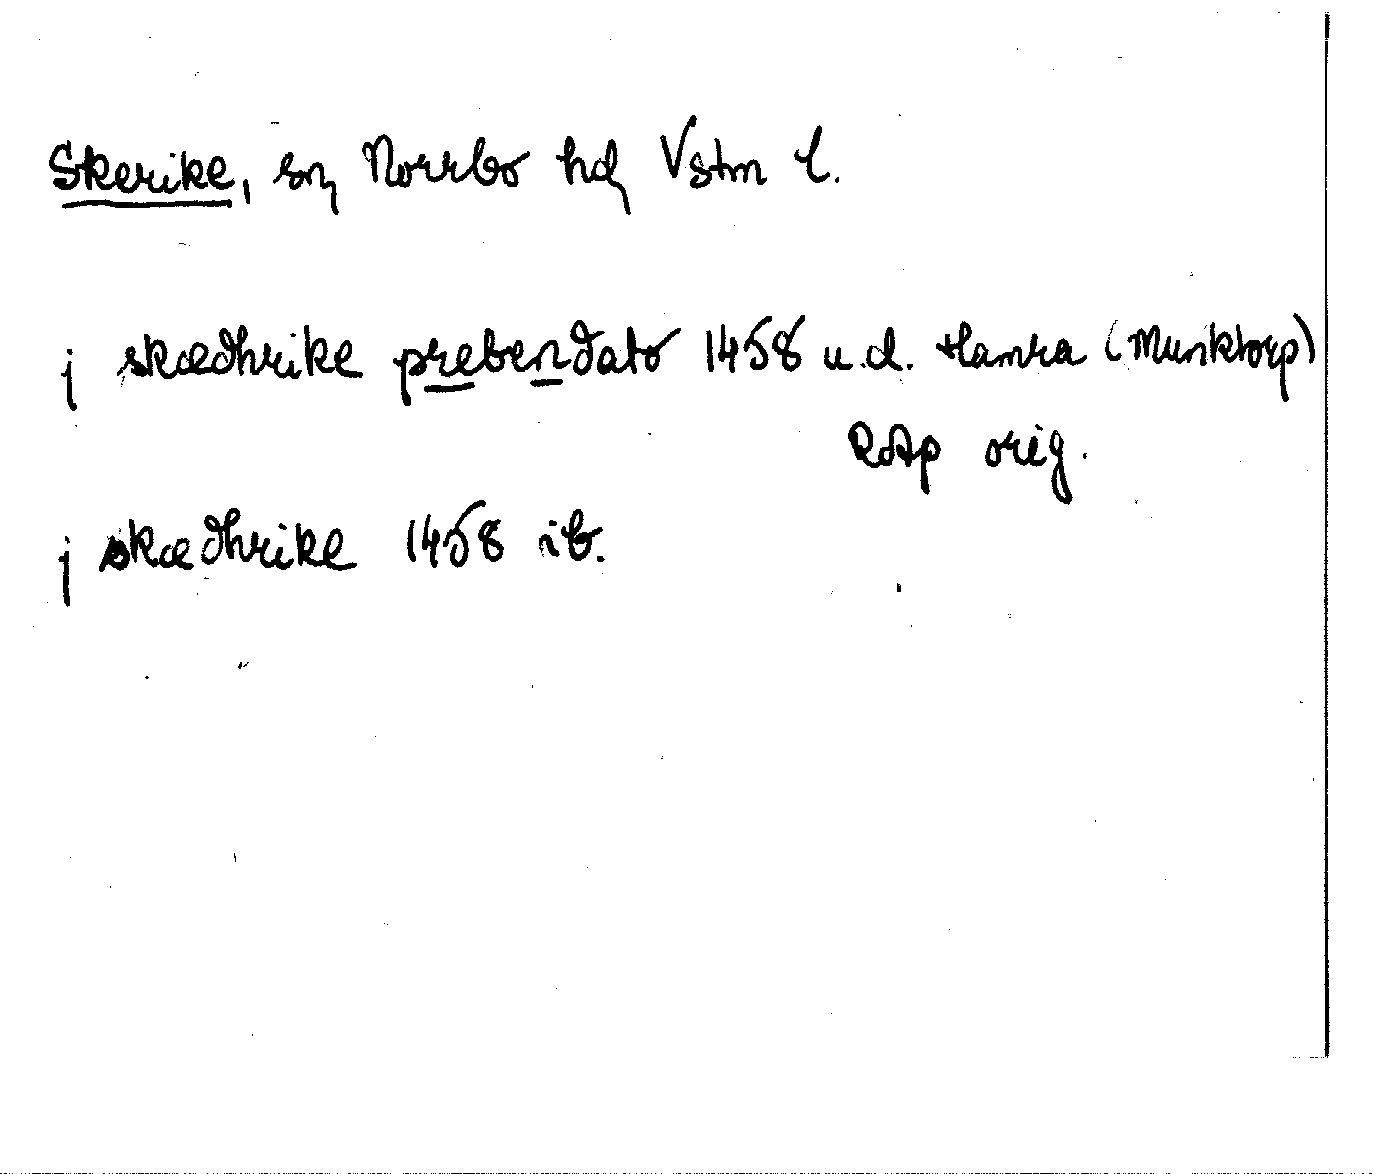 Skerike, sn, Norrbo hd, Vstm l.
j skædhrike prebendato 1458 u.d. Hamra (Munktorp)
RAp orig.
j skædhrike 1458 ib.